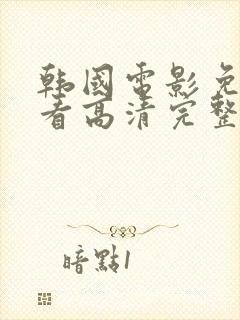 韩國電影免
看高清完整
暗點1